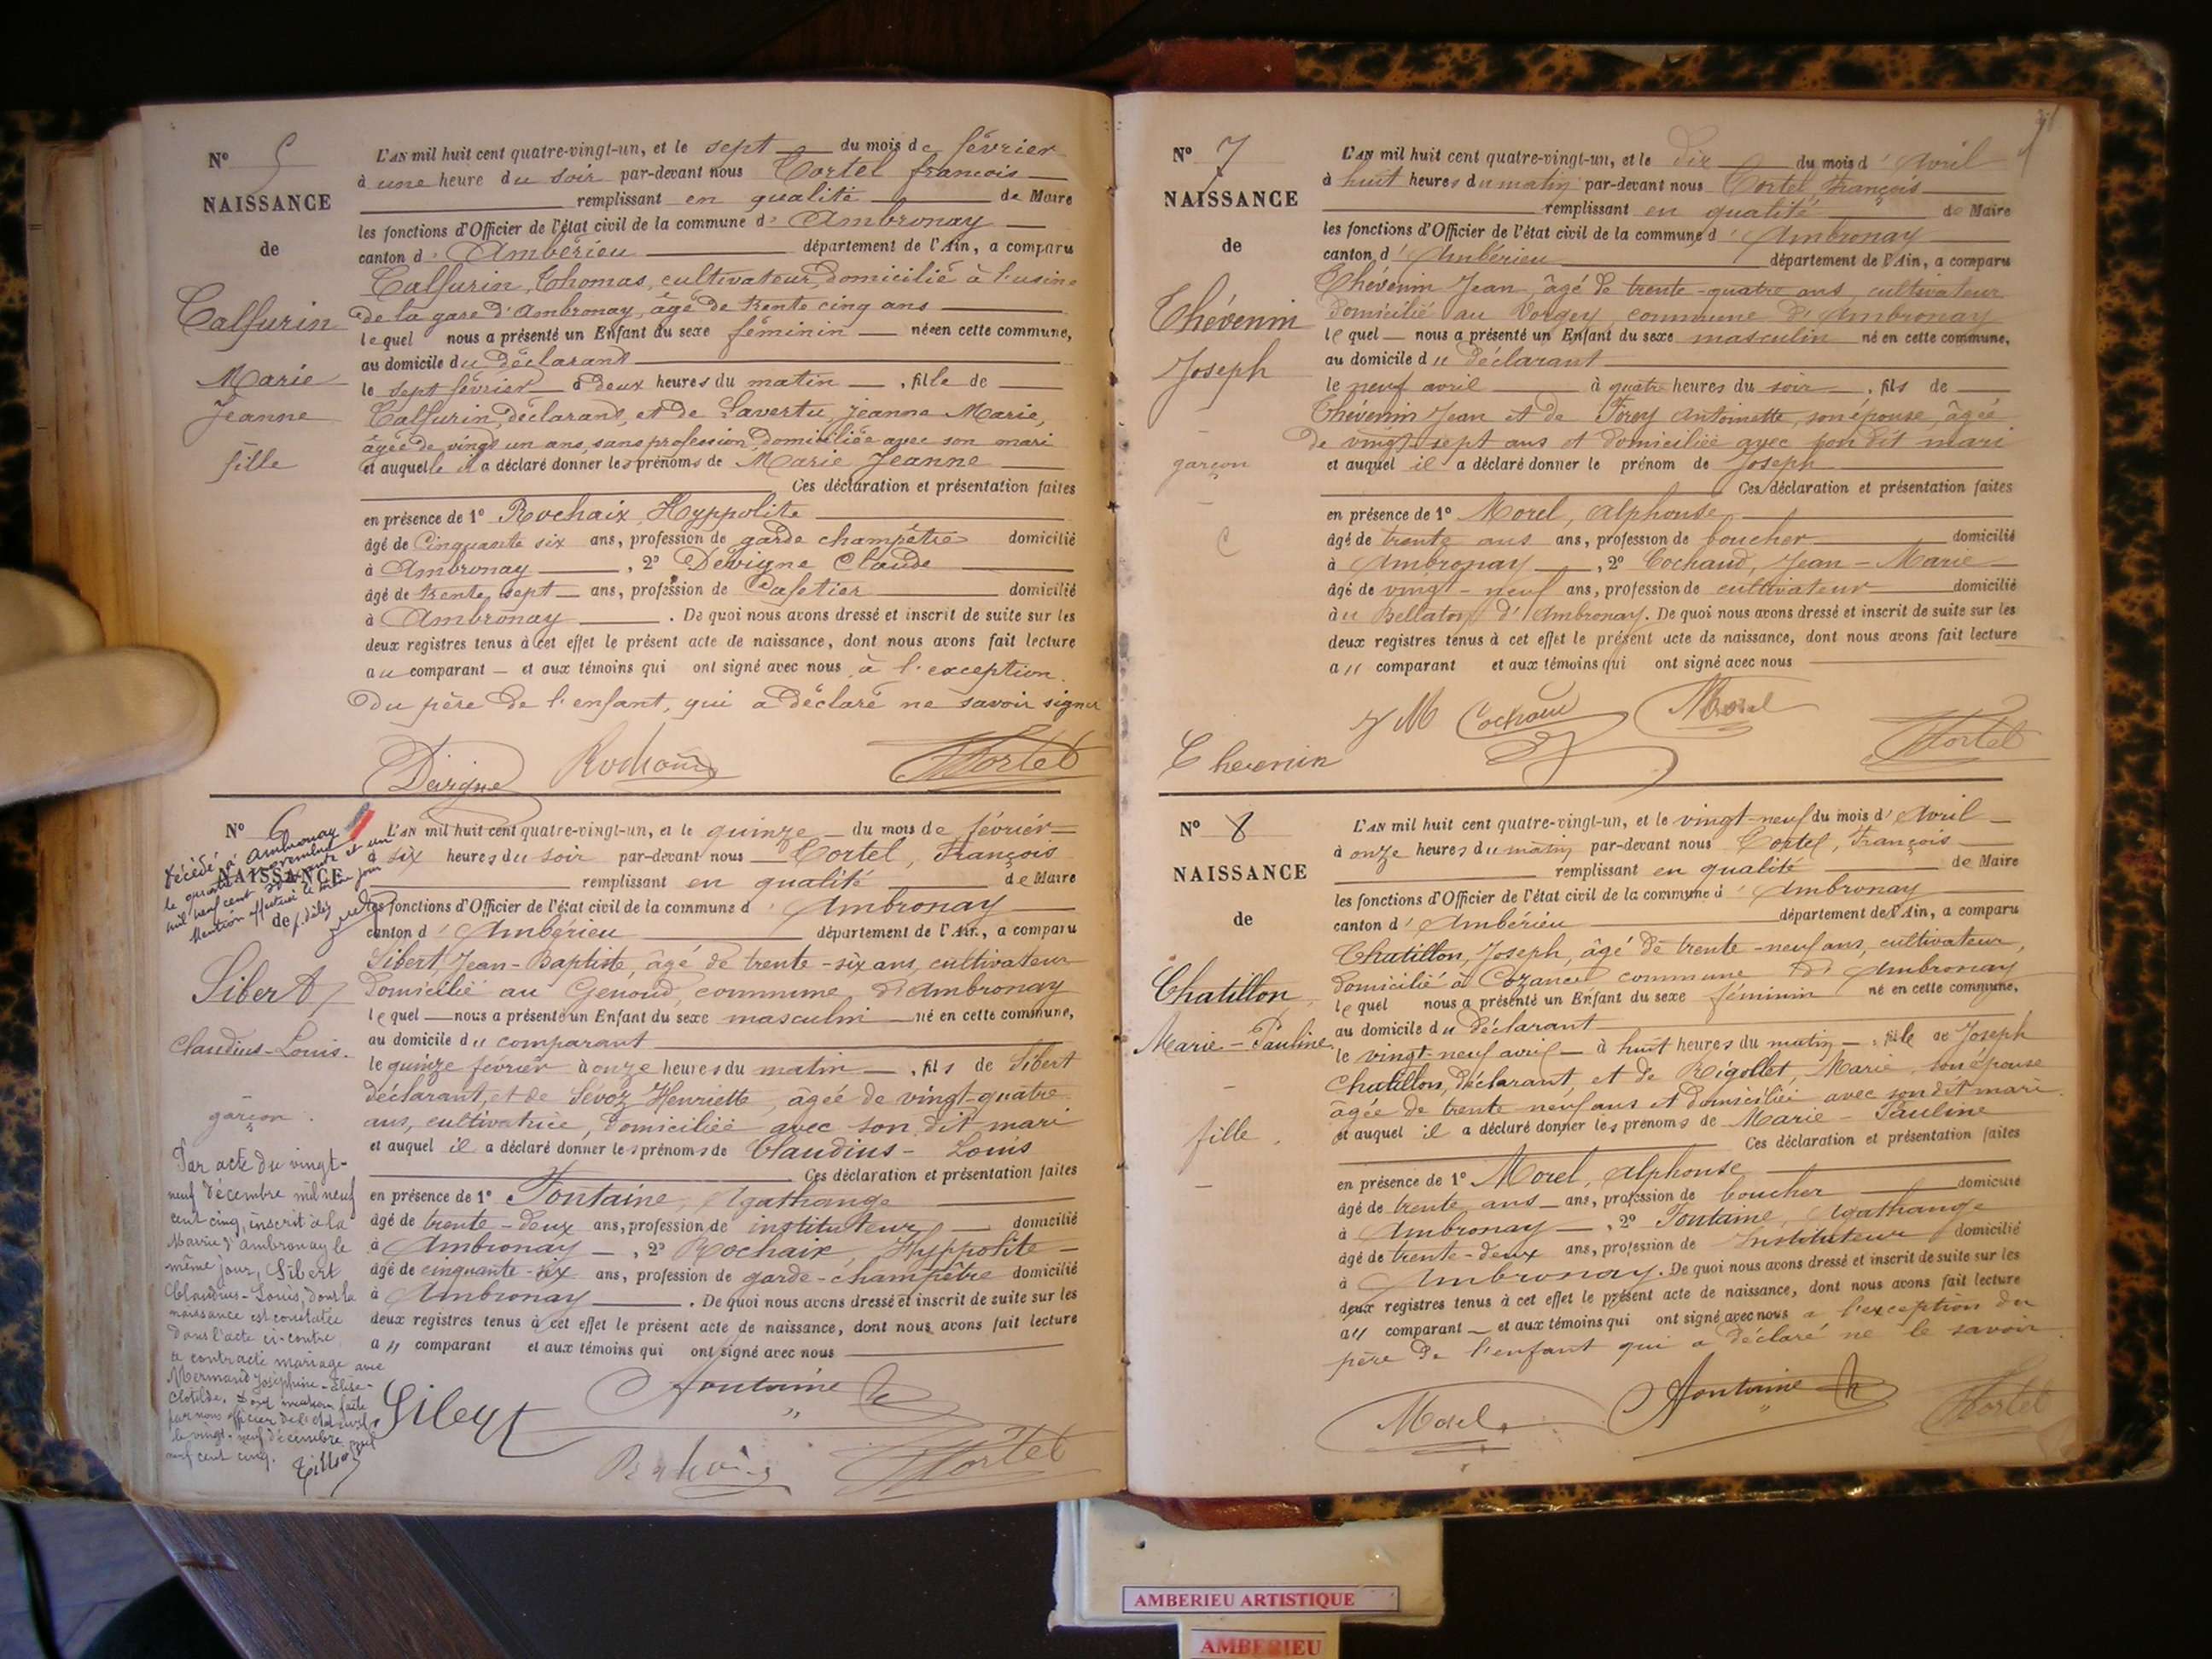 N° 5
NAISSANCE
de
Calfurin
Marie
Jeanne
fille
L'AN mil huit cent quatre-vingt-un, et le sept du mois de février
à une heure du soir par-devant nous Tortel francois
remplissant en qualité de Maire
les fonctions d'Officier de l'état civil de la commune d' Ambronay
canton d' Ambérieu département de l'Ain, a comparu
Calfurin, Thomas, cultivateur, domicilié à l'usine
de la gare d'Ambronay, âgé de trente cinq ans
lequel nous a présenté un Enfant du sexe féminin née en cette commune,
au domicile du déclarant
le sept février à deux heures du matin, fille de
Calfurin, déclarant, et de Lavertu, Jeanne Marie,
âgée de vingt un ans, sans profession, domiciliée avec son mari
et auquelle il a déclaré donner les prénoms de Marie Jeanne
Ces déclaration et présentation faites
en présence de 1° Rochaix, Hyppolite
âgé de Cinquante six ans, profession de garde champêtre domicilié
à Ambronay, 2° Dévigne Claude
âgé de trente sept ans, profession de Cafetier domicilié
à Ambronay. De quoi nous avons dressé et inscrit de suite sur les
deux registres tenus à cet effet le présent acte de naissance, dont nous avons fait lecture
au comparant et aux témoins qui ont signé avec nous, à l'exception
du père de l'enfant, qui a déclaré ne savoir signer
Devigne Rochaix Tortel
N° 6
Décédé à Ambronay
le quatorze novembre
mil neuf cent soixante et un
Mention effectuée le même jour
NAISSANCE
de
Sibert
Claudius-Louis.
garçon.
Par acte du vingt-
neuf décembre mil neuf
cent cinq, inscrit à la
Mairie d'Ambronay le
même jour, Sibert
Claudius-Louis, dont la
naissance est constatée
dans l'acte ci-contre
a contracté mariage avec
Mermand Joséphine-Elise-
Clotilde. Dont mention faite
par nous officier de l'état civil
le vingt-neuf décembre mil
neuf cent cinq.
L'AN mil huit cent quatre-vingt-un, et le quinze du mois de février
à six heures du soir par-devant nous Tortel, François
remplissant en qualité de Maire
les fonctions d'Officier de l'état civil de la commune d' Ambronay
canton d' Ambérieu département de l'Ain, a comparu
Sibert, Jean-Baptiste, âgé de trente-six ans, cultivateur
domicilié au Genoud, commune d'Ambronay
lequel nous a présenté un Enfant du sexe masculin né en cette commune,
au domicile du comparant
le quinze février à onze heures du matin, fils de Sibert
déclarant, et de Sévoz Henriette, âgée de vingt-quatre
ans, cultivatrice, domiciliée avec son dit mari
et auquel il a déclaré donner les prénoms de Claudius-Louis
Ces déclaration et présentation faites
en présence de 1° Fontaine, Agathange
âgé de trente-deux ans, profession de instituteur domicilié
à Ambronay, 2° Rochaix, Hyppolite
âgé de cinquante-six ans, profession de garde-champêtre domicilié
à Ambronay. De quoi nous avons dressé et inscrit de suite sur les
deux registres tenus à cet effet le présent acte de naissance, dont nous avons fait lecture
au comparant et aux témoins qui ont signé avec nous
Sibert Fontaine
Rochaix Tortel
N° 7
NAISSANCE
de
Thévenin
Joseph
garçon
L'AN mil huit cent quatre-vingt-un, et le dix du mois d'Avril
à huit heures du matin par-devant nous Tortel, François
remplissant en qualité de Maire
les fonctions d'Officier de l'état civil de la commune d' Ambronay
canton d' Ambérieu département de l'Ain, a comparu
Thévenin Jean, âgé de trente-quatre ans, cultivateur
domicilié au Vorgey, commune d'Ambronay
lequel nous a présenté un Enfant du sexe masculin né en cette commune,
au domicile du déclarant
le neuf avril à quatre heures du soir, fils de
Thévenin Jean et de Forey Antoinette, son épouse, âgée
de vingt-sept ans et domiciliée avec son dit mari
et auquel il a déclaré donner le prénom de Joseph
Ces déclaration et présentation faites
en présence de 1° Morel, Alphonse
âgé de trente ans ans, profession de boucher domicilié
à Ambronay, 2° Cochaud, Jean-Marie
âgé de vingt-neuf ans, profession de cultivateur domicilié
au Bellaton d'Ambronay. De quoi nous avons dressé et inscrit de suite sur les
deux registres tenus à cet effet le présent acte de naissance, dont nous avons fait lecture
au comparant et aux témoins qui ont signé avec nous
J M Cochaud Morel
Thevenin Tortel
N° 8
NAISSANCE
de
Chatillon,
Marie-Pauline
fille.
L'AN mil huit cent quatre-vingt-un, et le vingt-neuf du mois d'Avril
à onze heures du matin par-devant nous Tortel, François
remplissant en qualité de Maire
les fonctions d'Officier de l'état civil de la commune d' Ambronay
canton d' Ambérieu département de l'Ain, a comparu
Chatillon, Joseph, âgé de trente-neuf ans, cultivateur,
domicilié à Cozance commune d'Ambronay
lequel nous a présenté un Enfant du sexe féminin né en cette commune,
au domicile du déclarant
le vingt-neuf avril à huit heures du matin, fille de Joseph
Chatillon, déclarant, et de Rigollet, Marie, son épouse
âgée de trente neuf ans et domiciliée avec son dit mari.
et auquel il a déclaré donner les prénoms de Marie-Pauline
Ces déclaration et présentation faites
en présence de 1° Morel, Alphonse
âgé de trente ans ans, profession de boucher domicilié
à Ambronay, 2° Fontaine, Agathange
âgé de trente-deux ans, profession de Instituteur domicilié
à Ambronay. De quoi nous avons dressé et inscrit de suite sur les
deux registres tenus à cet effet le présent acte de naissance, dont nous avons fait lecture
au comparant et aux témoins qui ont signé avec nous a l'exception du
père de l'enfant qui a déclaré ne le savoir
Morel Fontaine Tortel
AMBERIEU ARTISTIQUE
AMBERIEU